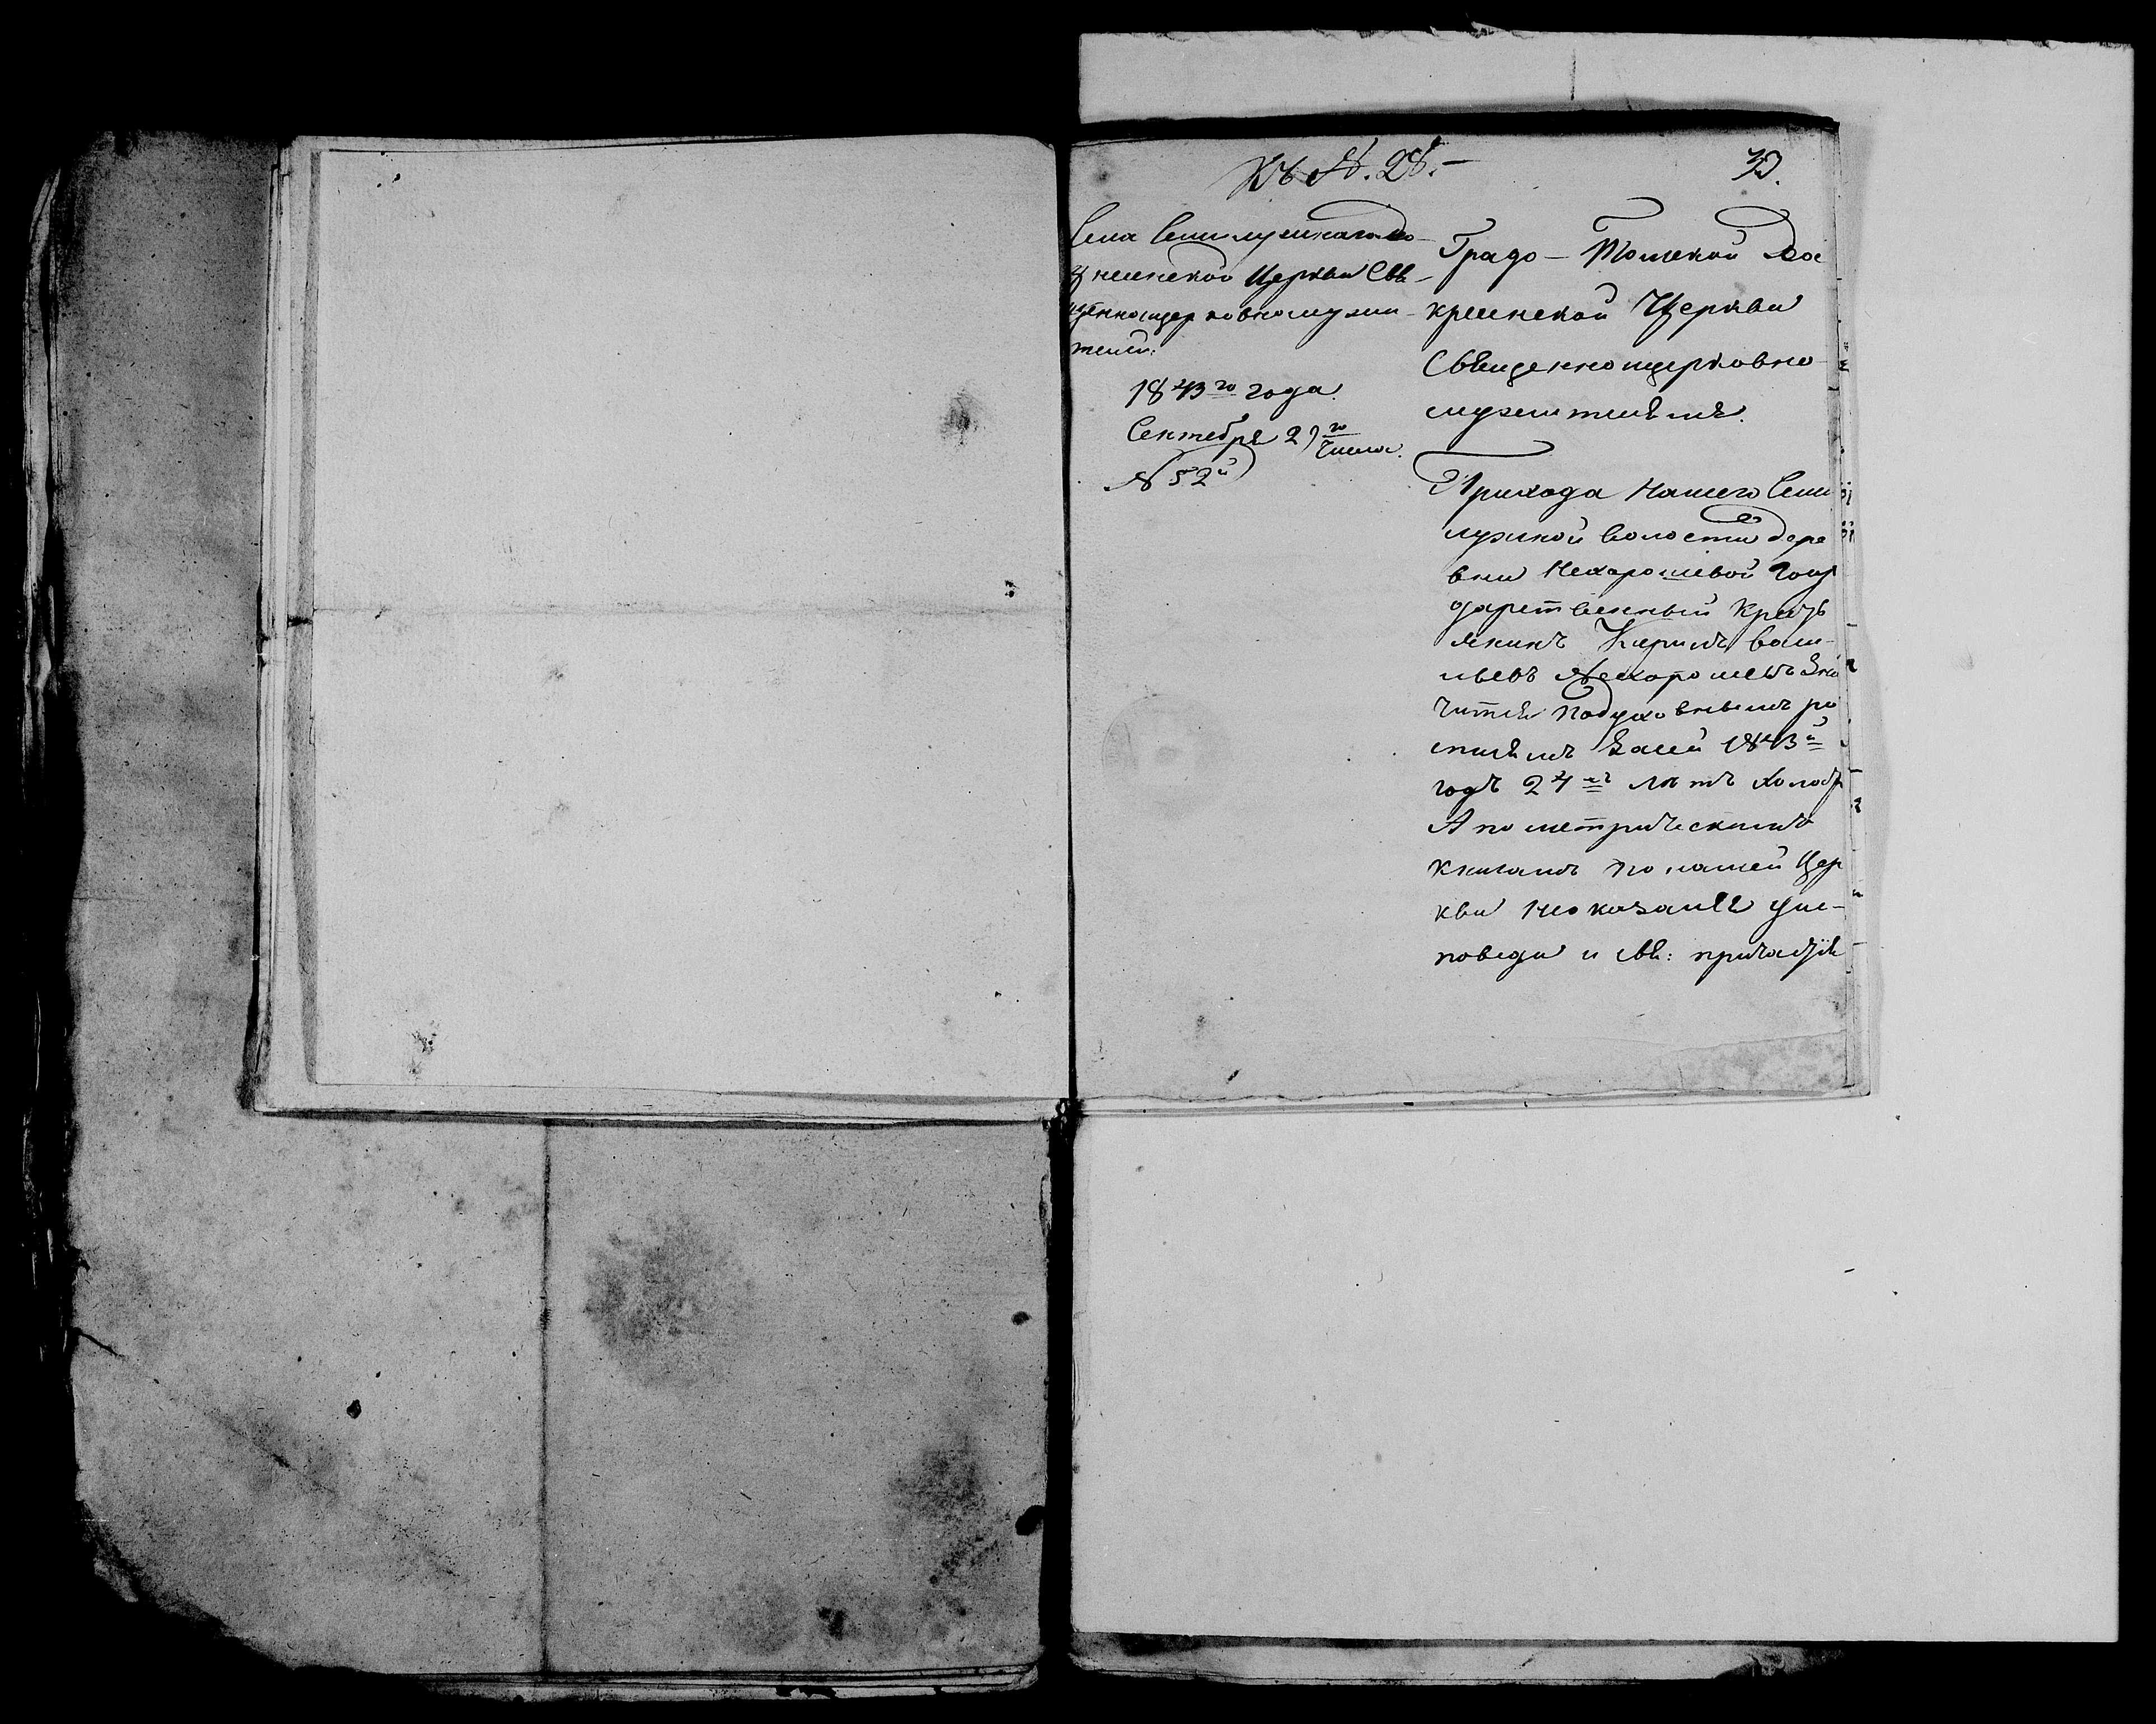 Къ №. 28.-
30.
Села Семилужнаго Во-
зненской Церкви Свѣ-
щенноцерковнослужи-
телей:
1843го года.
Сентебря 29го числа.
№ 52й
Градо-Томской Вос
кресенской Церкви
Свѣщенноцерковно-
служителѣмъ.
Прихода Нашего Семи
лужной волости дере
вни Нехорошевой Госу
дарственный Кресть
янинъ Кирилъ Васи-
льевъ Нехорошевъ Зна
чится По духовнымъ ро
списѣмъ Засей 1843й
годъ 24хъ лѣтъ холостъ
А по метрическимъ
книгамъ По нашей Цер
кви Неоказался Уис-
поведи и Свѣ: причастія